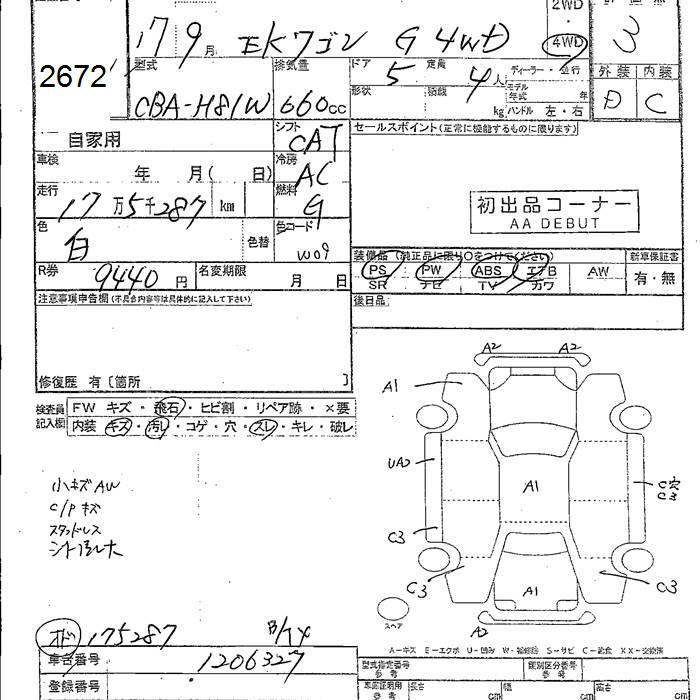 2WD
・
4WD
17 9 月 EKワゴン G 4WD
3
2672
型式 排気量 ドア 定員 ディーラー・並行
CBA-H81W 660cc 5 4人
形状 積載 kg モデル年式 年
ハンドル 左・右
外装 内装
D C
自家用
シフト
CAT
セールスポイント(正常に機能するものに限ります)
車検 年 月( 日)
冷房
AC
走行 17万5千287 km
燃料
G
初出品コーナー
AA DEBUT
色 白 色替
色コード
W09
装備品 (純正品に限り○をつけてください)
新車保証書
PS PW ABS エアB AW 有・無
SR ナビ TV カワ
R券 9440 円 名変期限 月 日
後日品
注意事項申告欄(不具合内容等は具体的に記入して下さい)
修復歴 有〔箇所 〕
検査員記入欄
FW キズ・飛石・ヒビ割・リペア跡・×要
内装 キズ・汚れ・コゲ・穴・スレ・キレ・破レ
A2 A2
A1
UA2
A1
C穴
C3
C3
C3
C3
A1
A2
スペア
小キズAW
C/Pキズ
スタッドレス
オド 175287
車台番号 1206327
登録番号
A-キズ E-エクボ U-凹み W-補修跡 S-サビ C-腐食 XX-交換済
型式指定番号 類別区分番号
参考 参考
車庫証明用 長さ 幅 高さ
参考 cm cm cm